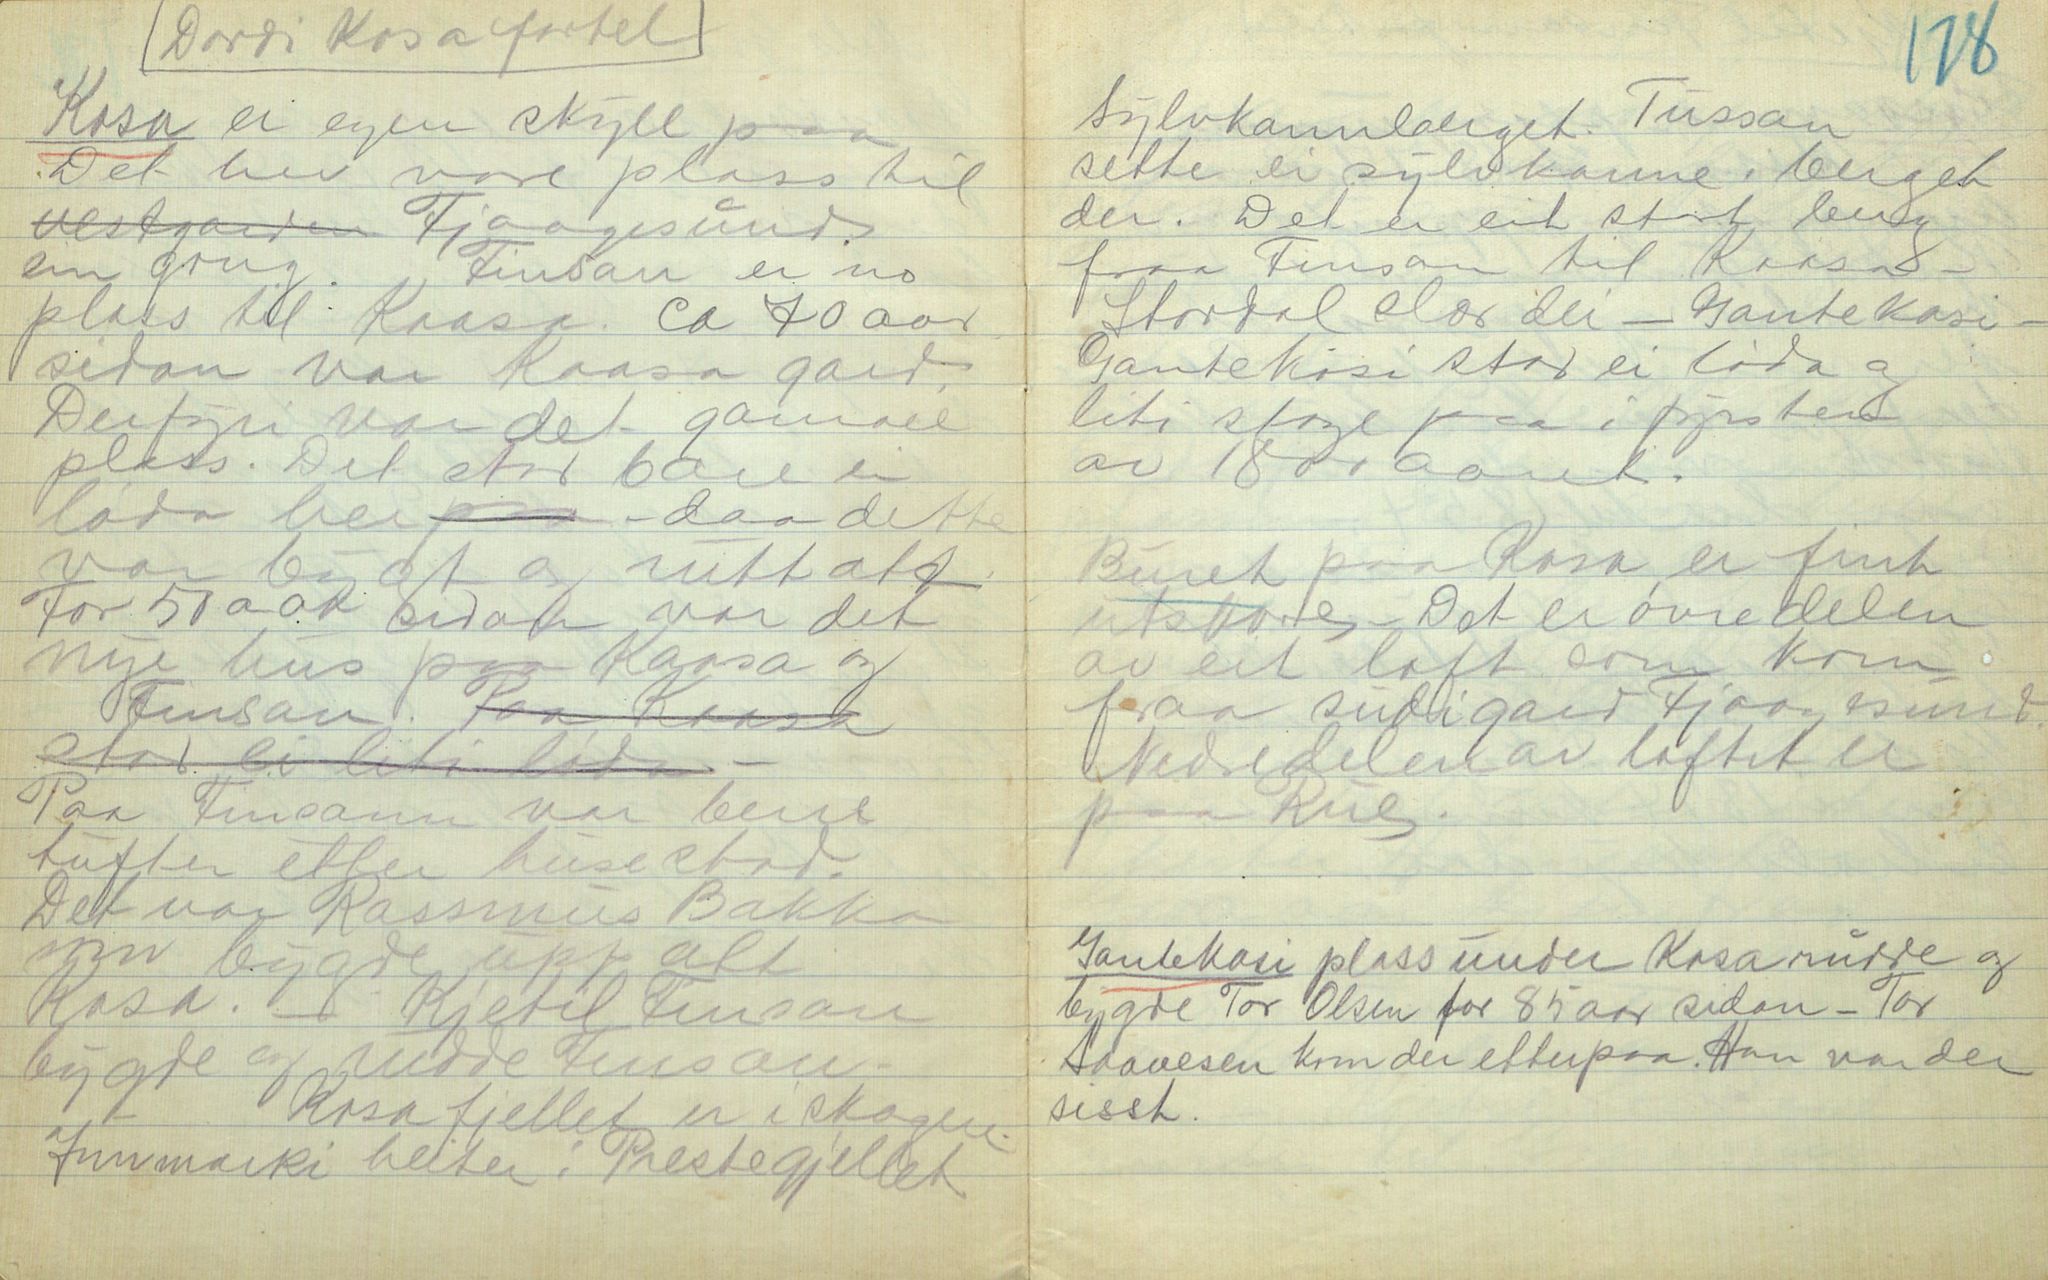 Dordi Kosa fortel
Kosa er egen skyll paa
Det hev vore plass til
vestgarden Fjaagesund
ein gong. Finsan er no
plass til Kaasa. Ca 70 aar
sidan var Kaasa gard.
Derfyri var det gamall
plass. Det stod bare ei
löda her paa - daa dette
var bygt og rutt alt.
For 50 aar sidan var det
nye hus paa Kaasa og
Finsan. Paa Kaasa
stod ei liti löda -
Paa Finsann var berre
tufter etter husestad.
Det var Rassmus Bakka
som bygde upp alt
Kosa. - Kjetil Finsan
bygde og rudde Finsan.
Kosafjellet er i skogen.
Innmarki heiter i Prestegjellet
178
Sylvkannberget. Tussan
sette ei sylvkanne i berget
der. Det er eit stort berg
fraa Finsan til Kaasa -
Stordal slær dei - Gantekasi -
Gantekosi stod ei löda og
liti stoge paa i fyrsten
av 1800 aaret.
Buret paa Kosa er fint
utskore - Det er óvre delen
av eit loft som kom
fraa sudigard Fjaagesund.
Nedre delen av loftet er
paa Rue.
Gantekasi plass under Kosa rudde og
bygde Tor Olsen for 85 aar sidan - Tor
Saavesen kom der etterpaa. Han var der
sisst.